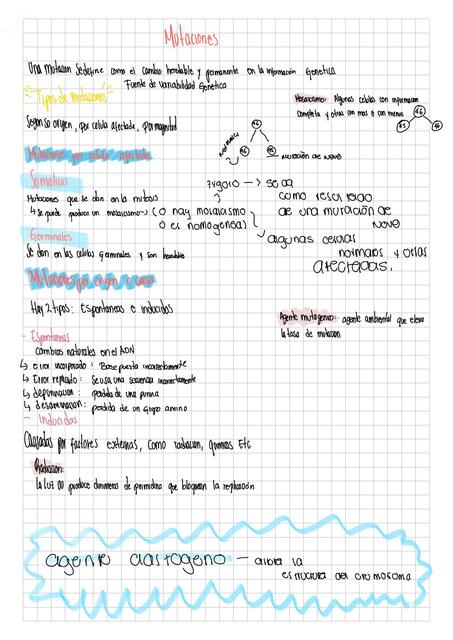 Mutaciones
Una mutacion se define como el cambio heredable y permanente en la informacion genetica
Fuente de variabilidad genetica
Tipos de mutaciones
Mosaicismo: Algunas celulas con informacion
completa y otras con mas o con menos
Segun su origen, por celula afectada, por magnitud
46
45
46
46
normales
mutación de novo
Mutaciones por celula afectada
Somaticas
Mutaciones que se dan en la mitosis
↳ se puede producir un mosaicismo
(o hay mosaicismo
o es homogenea)
→ se da
como resultado
de una mutación de
novo
algunas celulas
normales y otras
afectadas.
Germinales
Se dan en las celulas germinales y son heredables
Mutaciones por origen o causa
Hay 2 tipos: Espontaneas e inducidas
Agente mutagenico: agente ambiental que eleva
la tasa de mutacion
- Espontaneas
cambios naturales en el ADN
↳ error incorporado: Base puesta incorrectamente
↳ Error replicado: Se usa una secuencia incorrectamente
↳ depurinacion: perdida de una purina
↳ desaminacion: perdida de un grupo amino
- Inducidas
Causadas por factores externos, como radiacion, quimicos Etc
Radiacion:
la luz UV produce dimeros de pirimidina que bloquean la replicación
agente clastogeno — altera la
estructura del cromosoma